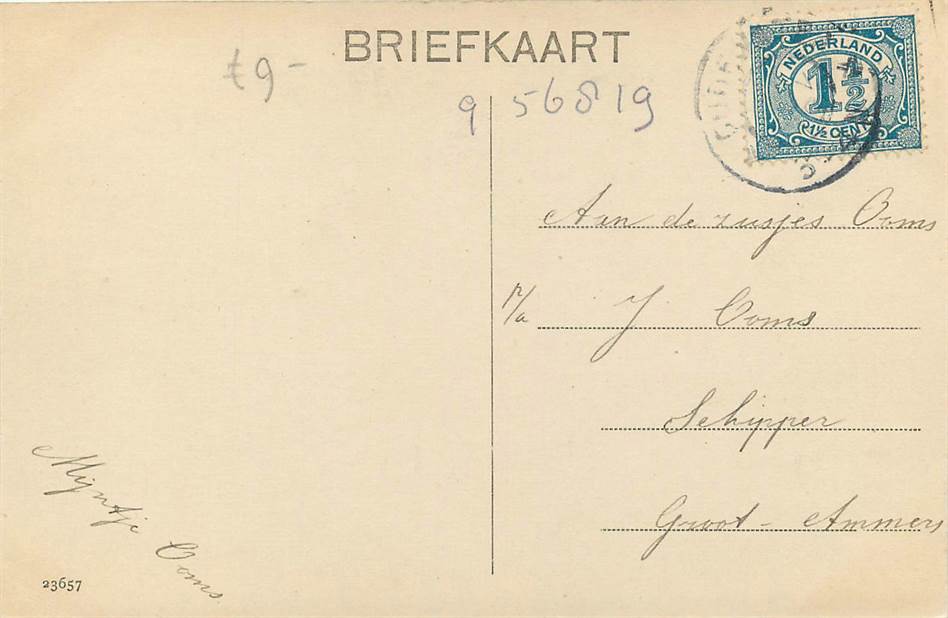 BRIEFKAART
f9-
9 56819
NEDERLAND
1½
1½ CENT
Aan de zusjes Ooms
p/a J Ooms
Schipper
Groot-Ammers
Myntje Ooms
23657